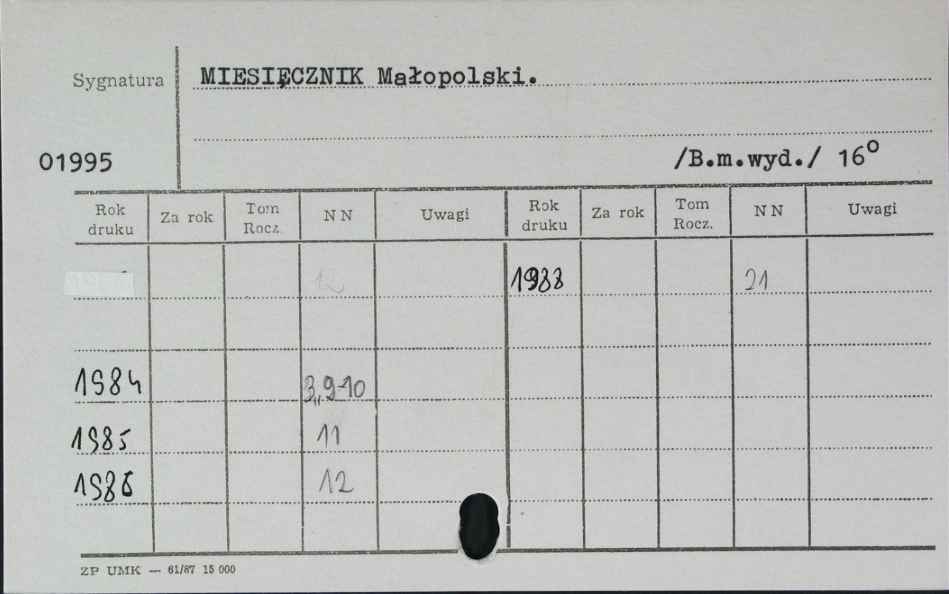 Sygnatura
MIESIĘCZNIK Małopolski.
01995
/B.m.wyd./ 16°
Rok druku Za rok Tom Rocz. NN Uwagi Rok druku Za rok Tom Rocz. NN Uwagi
12 1988 21
1984 3,,9-10
1985 11
1986 12
ZP UMK — 61/87 15 000